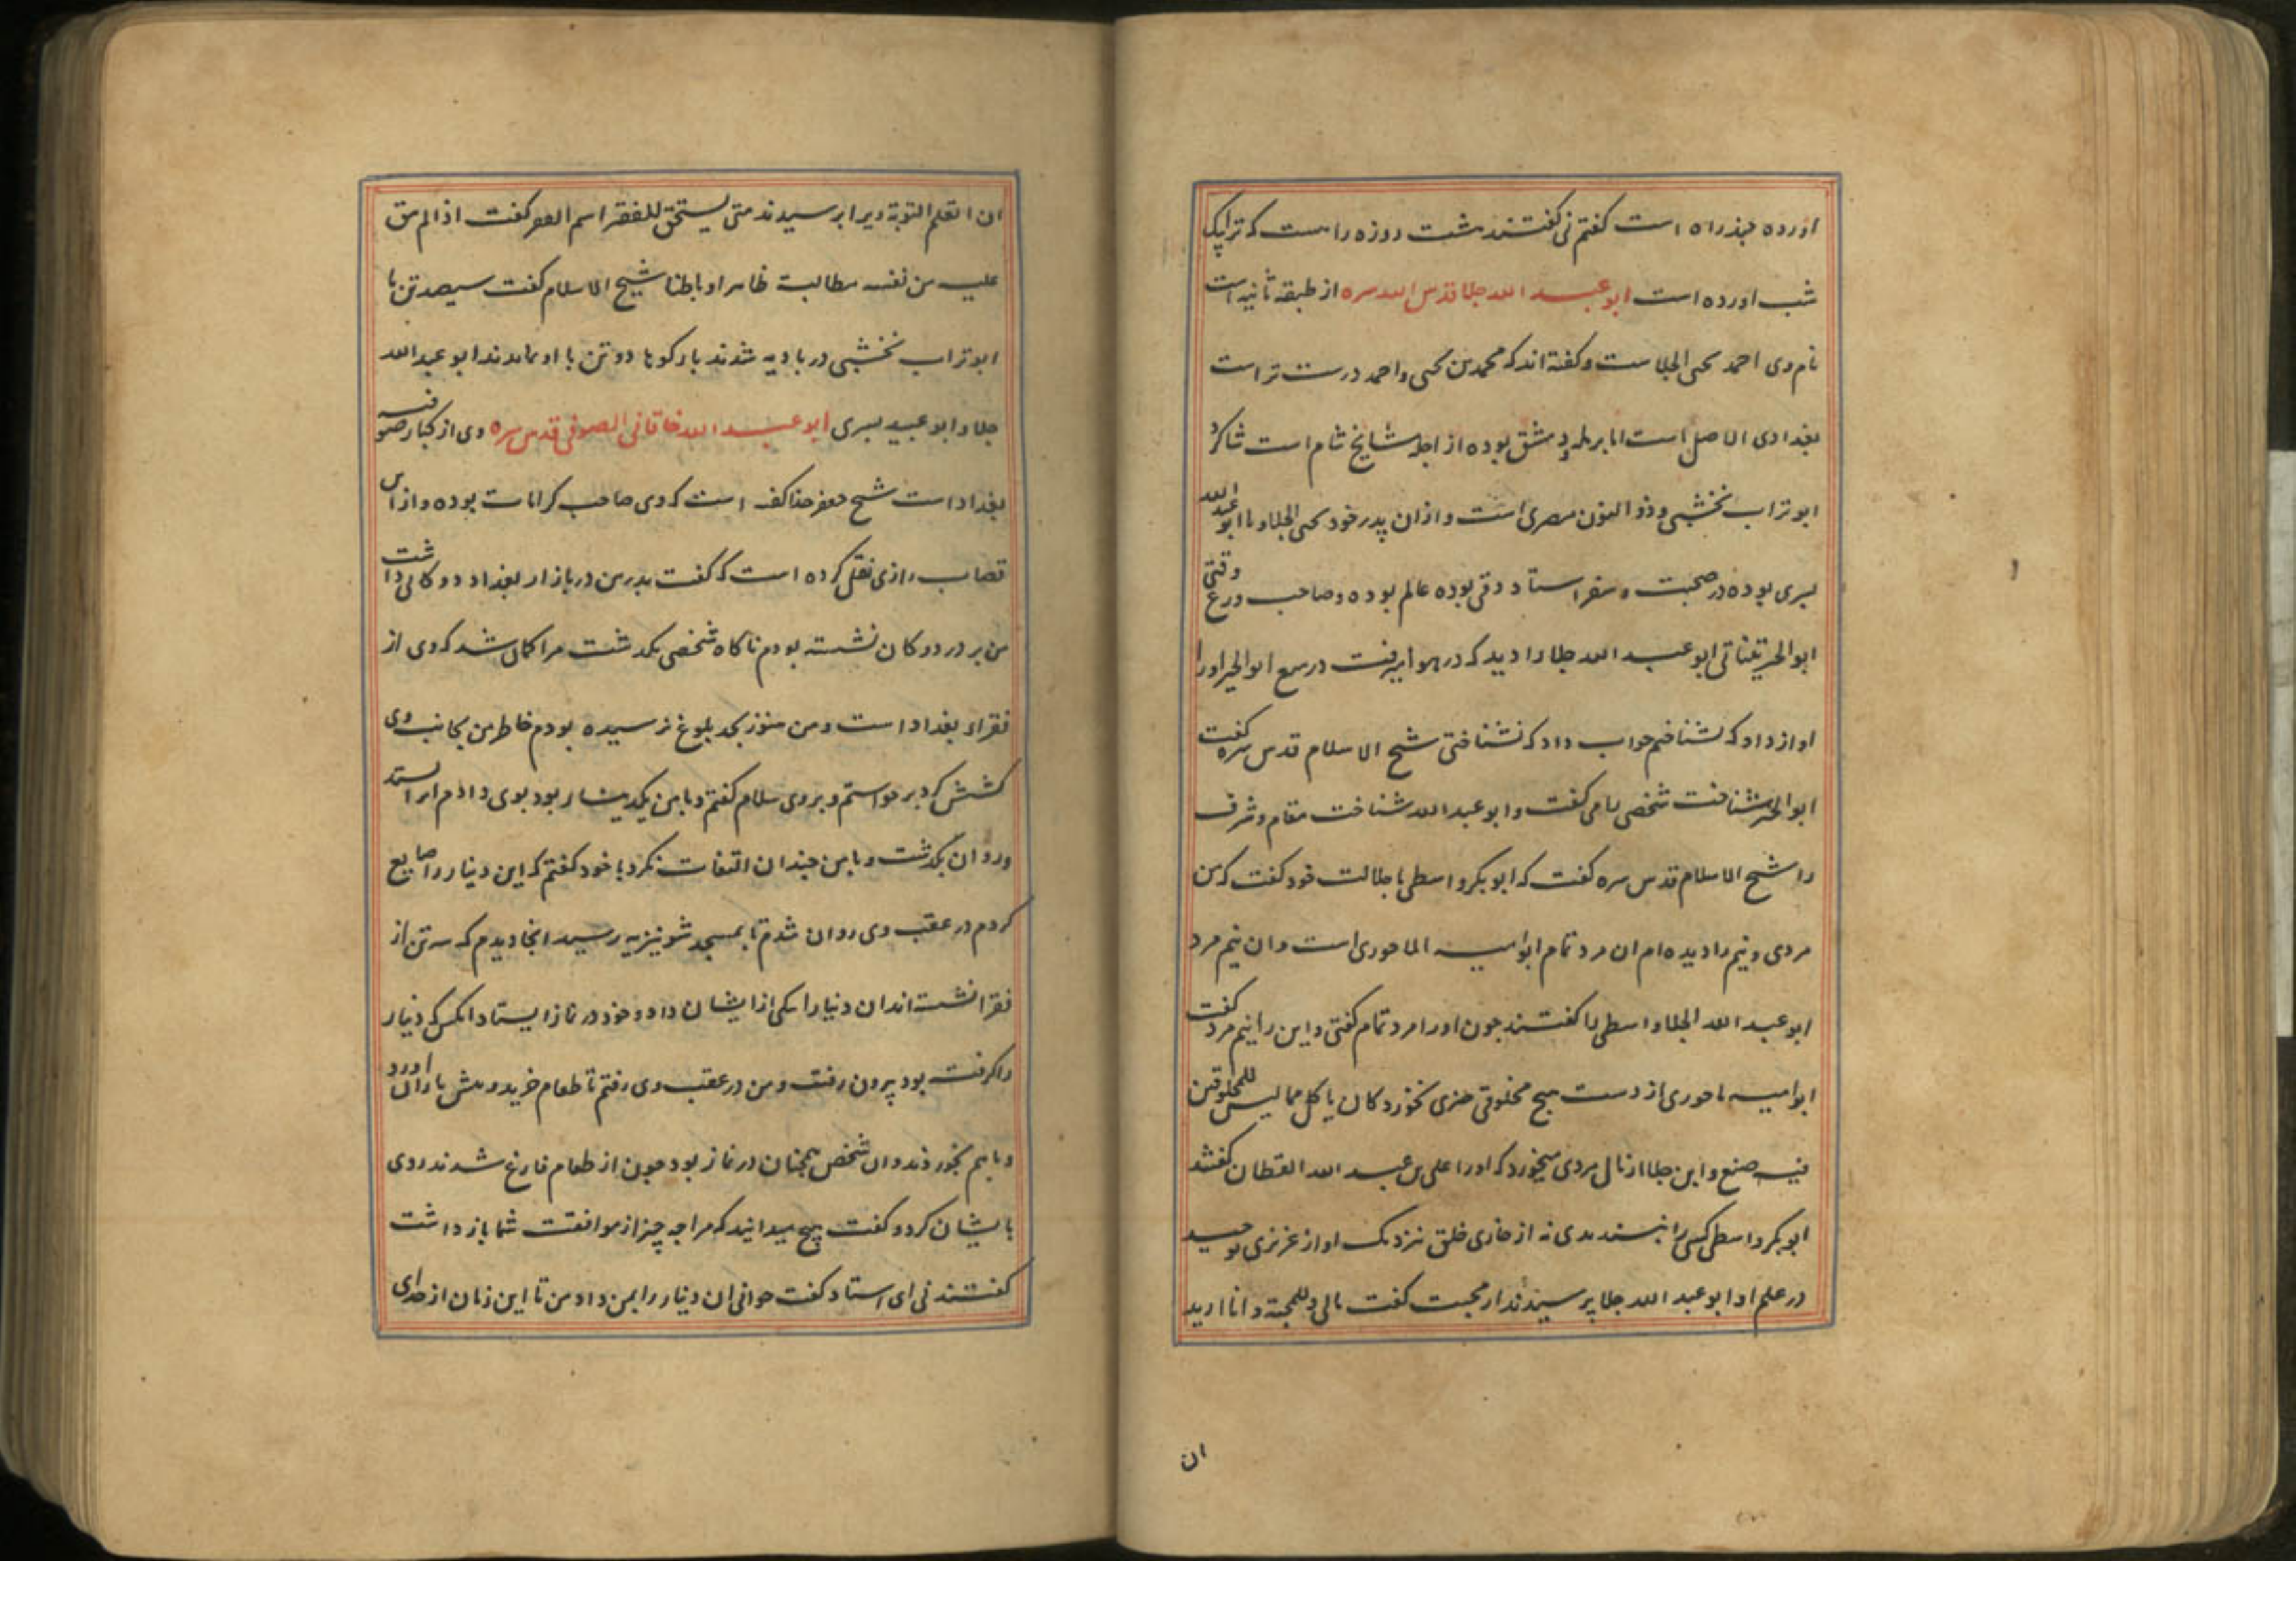 اورده چند راه است کفتم نی کفتند شت روزه راست که ترا یک
شب اورده است ابو عبد الله جلا قدس الله سره از طبقه ثانیه است
نام وی احمد یحیی الجلاست و کفته اند که محمد بن یحیی و احمد درست تر است
بغدادی الاصل است اما برمله و دمشق بوده از اجله مشایخ شام است شاکرد
ابو تراب نخشبی و ذو النون مصری است و ازان پدر خود یحیی الجلا و با ابو عبد الله
بسری بوده در صحبت و سفر استاد دقی بوده عالم بوده و صاحب ورع وقتی
ابو الخیر تیناتی ابو عبد الله جلا را دید که در هوا میرفت در میغ ابو الخیر اورا
اواز داد که بشناختم جواب داد که نشناختی شیخ الاسلام قدس سره کفت
ابو الخیر شناخت شخص را می کفت و ابو عبد الله شناخت مقام و شرف
را شیخ الاسلام قدس سره کفت که ابو بکر واسطی با جلالت خود کفت که من
مردی و نیم را دیده ام ان مرد تمام ابو امیه الماحوری است و ان نیم مرد
ابو عبد الله الجلا واسطی را کفتند چون اورا مرد تمام کفتی و این را نیم مرد کفت
ابو امیه ماحوری از دست هیچ مخلوقی چیزی نخورد کان یاکل مما لیس للمخلوقین
فیه صنع و ابن جلا از مال مردی میخورد که اورا علی بن عبد الله القطان کفتند
ابو بکر واسطی کسی را نپسندیدی نه از خاری خلق نزدیک او از عزیزی توحید
در علم او ابو عبد الله جلا پرسیدند از محبت کفت مالی و للمحبة و انا ارید
ان
ان اتعلم التوبة ویرا پرسیدند متی یستحق للفقیر اسم الفقر کفت اذا لم یبق
علیه من نفسه مطالبة ظاهرا و باطنا شیخ الاسلام کفت سیصد تن با
ابو تراب نخشبی در بادیه شدند با رکوها دو تن با او بماندند ابو عبد الله
جلا و ابو عبید بسری ابو عبد الله خاقانی الصوفی قدس سره وی از کبار صوفیه
بغداد است شیخ جعفر حذا کفته است که وی صاحب کرامات بوده و از ابن
قصاب رازی نقل کرده است که کفت پدر من در بازار بغداد دوکانی داشت
من بر در دوکان نشسته بودم ناکاه شخصی بکدشت مرا کمان شد که وی از
فقراء بغداد است و من هنوز بحد بلوغ نرسیده بودم خاطر من بجانب وی
کشش کرد برخواستم و بروی سلام کفتم و با من یکدینار بود بوی دادم انرا استد
و روان بکدشت و با من چندان التفات نکرد با خود کفتم که این دینار را ضایع
کردم در عقب وی روان شدم تا بمسجد شونیزیه رسید انجا دیدم که سه تن از
فقرا نشسته اند ان دنیار را بیکی از ایشان داد و خود در نماز ایستاد انکس که دنیار
را کرفته بود بیرون رفت و من در عقب وی رفتم تا طعام خرید و پیش یاران اورد
و باهم بخوردند و ان شخص همچنان در نماز بود چون از طعام فارغ شدند روی
بایشان کرد و کفت هیچ میدانید که مرا چه چیز از موافقت شما باز داشت
کفتند نی ای استاد کفت جوانی ان دینار را بمن داد من تا این زمان از خدای